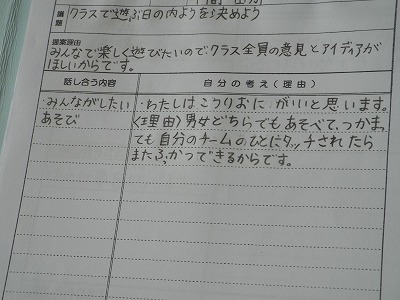 議題
クラスで遊ぶ日の内ようを決めよう
提案理由
みんなで楽しく遊びたいのでクラス全員の意見とアイディアが
ほしいからです。
話し合う内容
自分の考え(理由)
・みんながしたい
あそび
・わたしはこうりおにがいいと思います。
〈理由〉男女どちらでもあそべて、つかまっ
ても自分のチームのひとにタッチされたら
またふっかつできるからです。